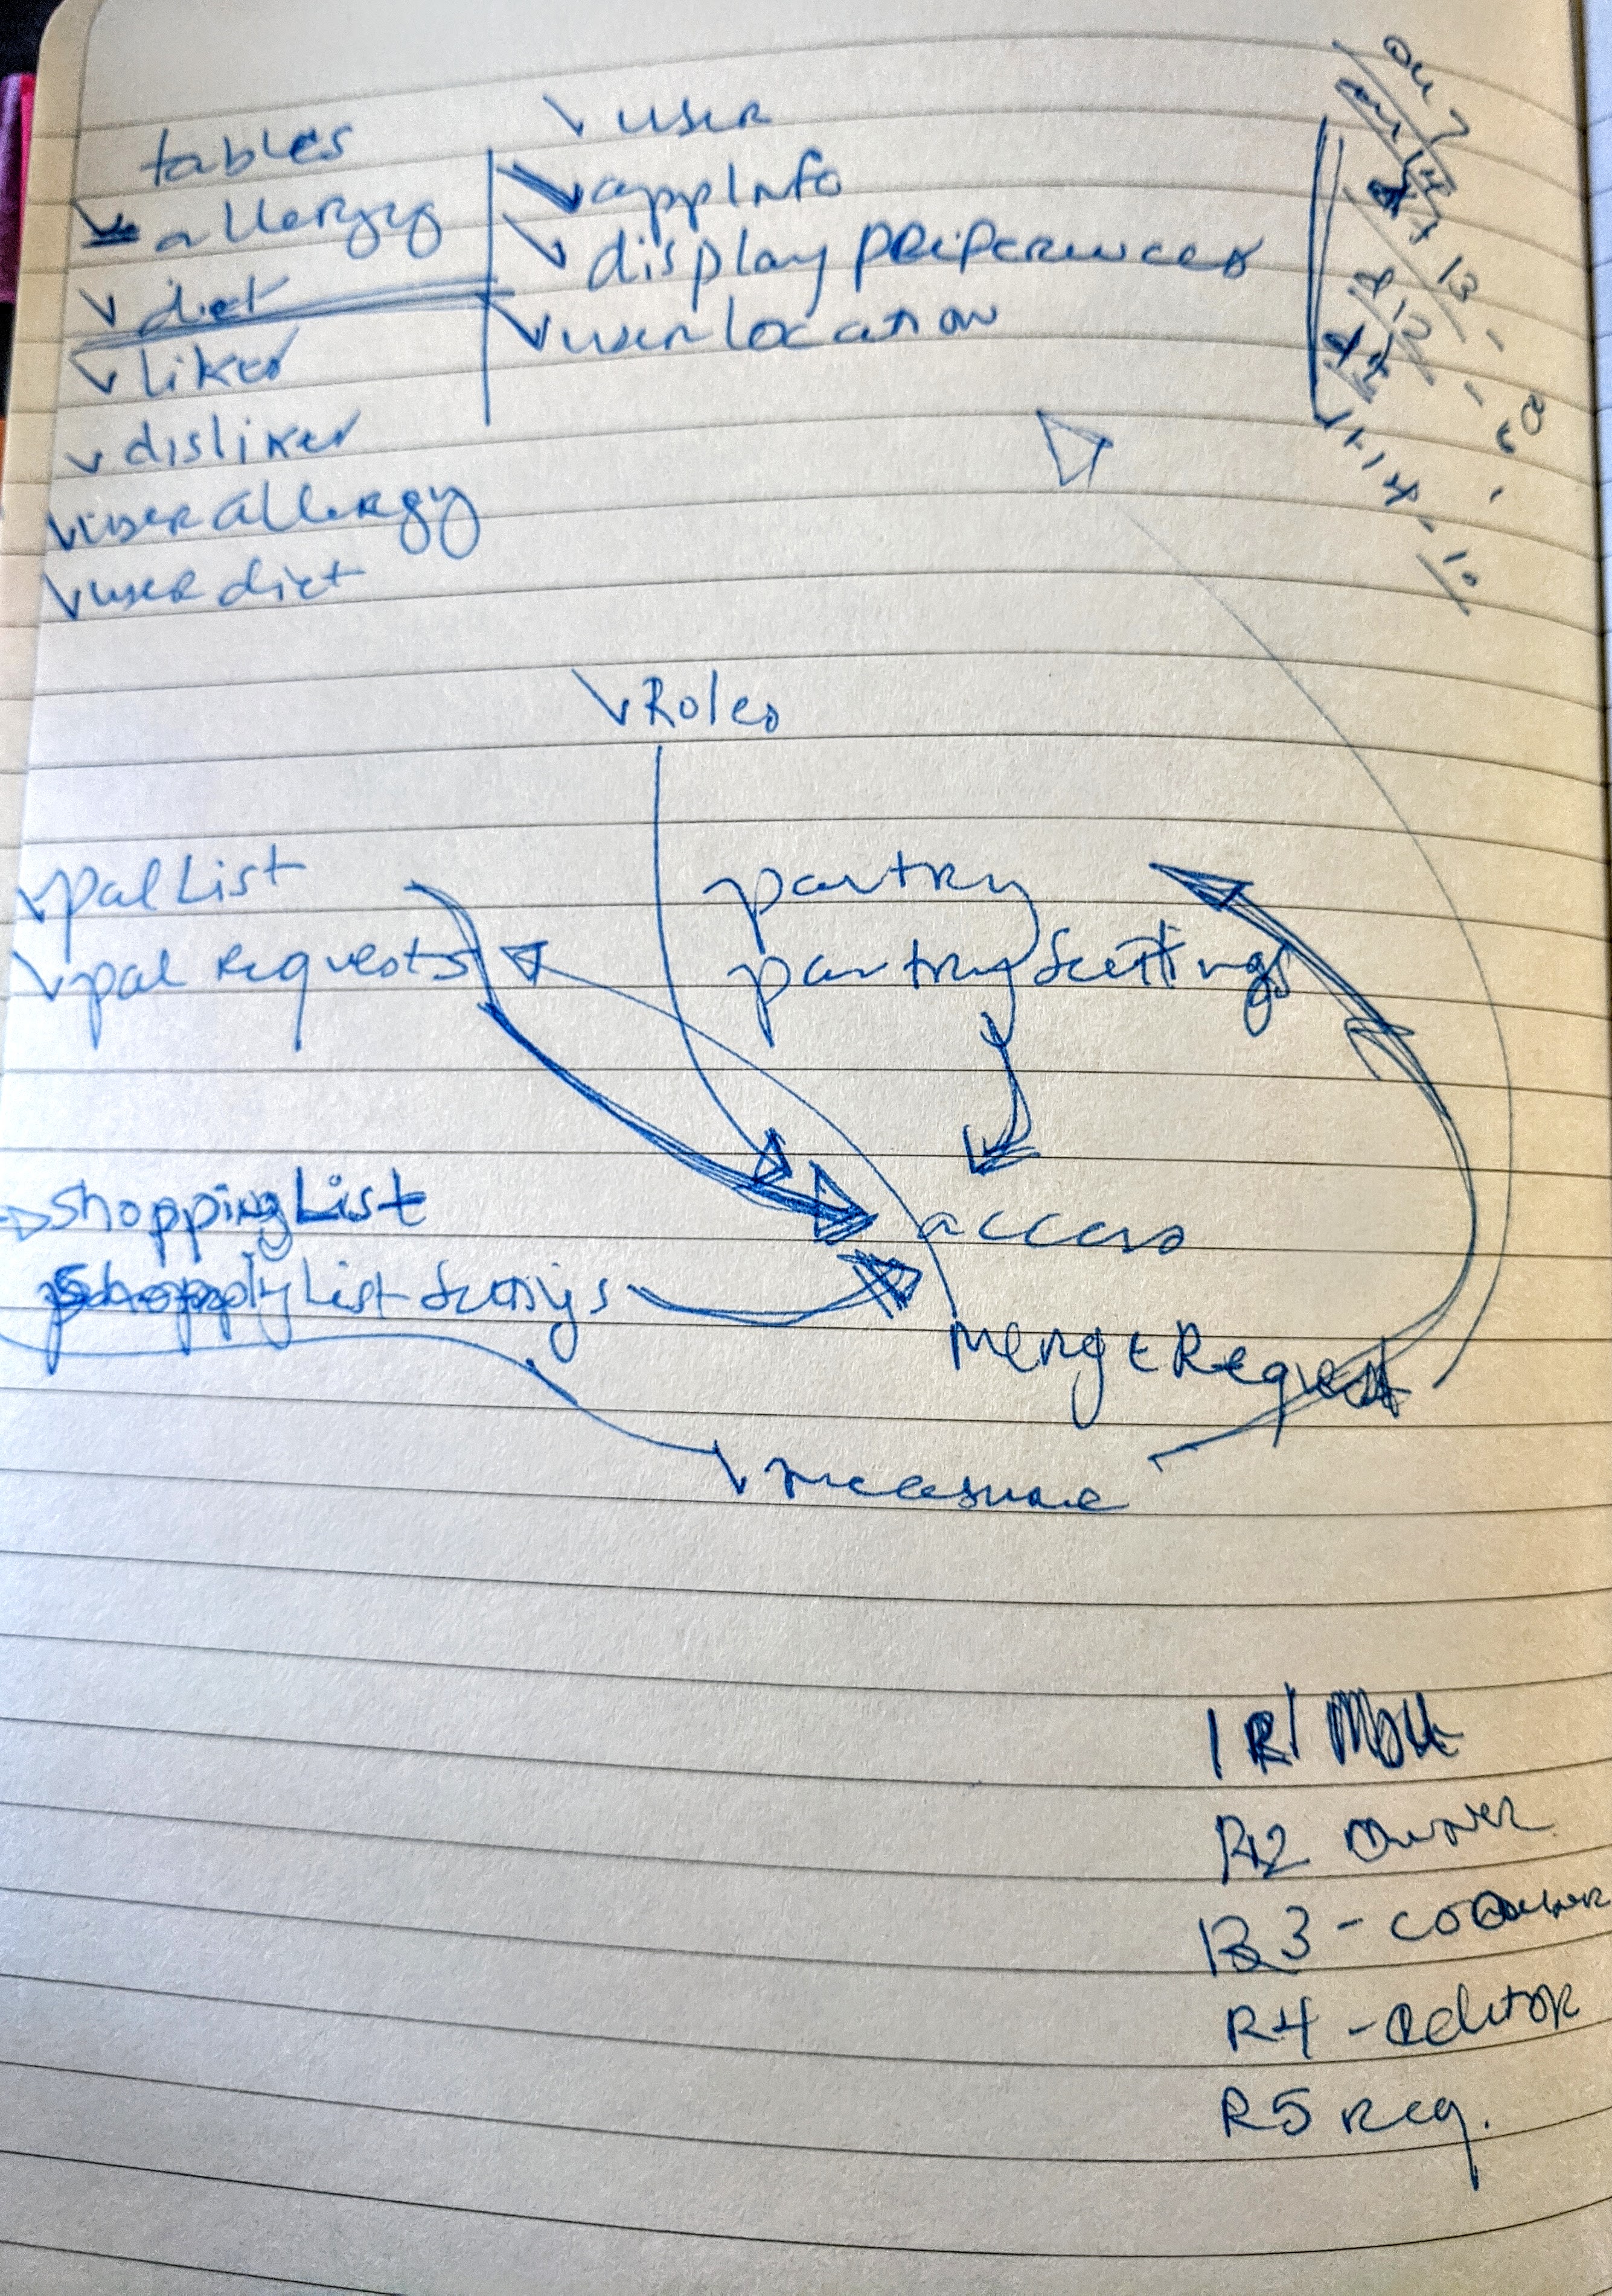 tables
allergy
diet
likes
dislikes
userallergy
userdiet
user
appInfo
display preferences
userlocation
13
10
Roles
palList
pal requests
pantry
pantrySettings
shoppingList
access
mergeRequest
measure
R2 owner
R3 - coowner
R4 - editor
R5 req.